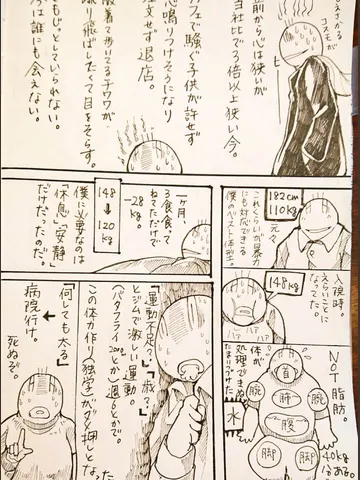 えさかる
コスモが
前から心は狭いが
当社比で3倍以上狭い今。
カフェ、騒ぐ子供が許せず
鳴りつけそうになり
文せず退店。
着て歩いてるチワワが
り飛ばしたくて目をそらす。
もじっとしていられない。
は誰にも会えない。
182cm
110kg
元々
これくらいが暴力
にも対応できる
僕のベスト体型。
一ヶ月、
3食食って
ねてただけで
-28kg。
148
↓
120kg
僕に必要なのは
「休息」「安静」
だけだったのだ。
入院時。
えらいことに
なってた。
148kg
ハァ
ハァ
ハァ
NOT脂肪。
体が
処理できぬ
たまりつづけた
水
40kg
はある。
首
腕
肺
腕
腹
脚
脚
「運動不足?」「歳?」
とジムで激しい運動。
(バタフライ200mとか)週6とかで。
この体力作り(独学)がダメ押しとなった
「何しても太る」
↓
病院行け。
死ぬぞ。